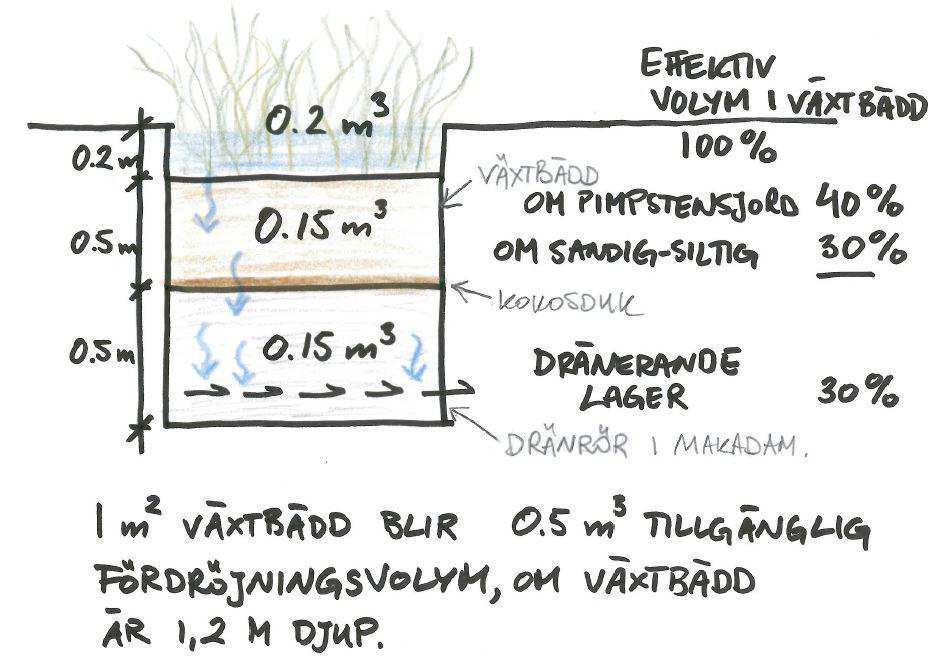 EFFEKTIV
VOLYM I VÄXTBÄDD
100%
0.2 m³
0.2 m
VÄXTBÄDD
OM PIMPSTENSJORD 40%
0.15 m³
0.5 m
OM SANDIG-SILTIG 30%
KOKOSDUK
0.15 m³
0.5 m
DRÄNERANDE
LAGER 30%
DRÄNRÖR I MAKADAM.
1 m² VÄXTBÄDD BLIR 0.5 m³ TILLGÄNGLIG
FÖRDRÖJNINGSVOLYM, OM VÄXTBÄDD
ÄR 1,2 M DJUP.